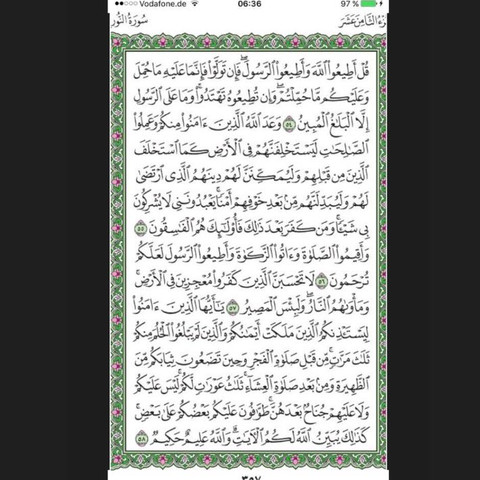 Vodafone.de 06:36 97 %
سُورَةُ النُّور الجُزْءُ الثَّامِنَ عَشَرَ
قُلْ أَطِيعُوا۟ ٱللَّهَ وَأَطِيعُوا۟ ٱلرَّسُولَ ۖ فَإِن تَوَلَّوْا۟ فَإِنَّمَا عَلَيْهِ مَا حُمِّلَ
وَعَلَيْكُم مَّا حُمِّلْتُمْ ۖ وَإِن تُطِيعُوهُ تَهْتَدُوا۟ ۚ وَمَا عَلَى ٱلرَّسُولِ
إِلَّا ٱلْبَلَـٰغُ ٱلْمُبِينُ ٥٤ وَعَدَ ٱللَّهُ ٱلَّذِينَ ءَامَنُوا۟ مِنكُمْ وَعَمِلُوا۟
ٱلصَّـٰلِحَـٰتِ لَيَسْتَخْلِفَنَّهُمْ فِى ٱلْأَرْضِ كَمَا ٱسْتَخْلَفَ
ٱلَّذِينَ مِن قَبْلِهِمْ وَلَيُمَكِّنَنَّ لَهُمْ دِينَهُمُ ٱلَّذِى ٱرْتَضَىٰ
لَهُمْ وَلَيُبَدِّلَنَّهُم مِّنۢ بَعْدِ خَوْفِهِمْ أَمْنًا ۚ يَعْبُدُونَنِى لَا يُشْرِكُونَ
بِى شَيْـًٔا ۚ وَمَن كَفَرَ بَعْدَ ذَٰلِكَ فَأُو۟لَـٰٓئِكَ هُمُ ٱلْفَـٰسِقُونَ ٥٥
وَأَقِيمُوا۟ ٱلصَّلَوٰةَ وَءَاتُوا۟ ٱلزَّكَوٰةَ وَأَطِيعُوا۟ ٱلرَّسُولَ لَعَلَّكُمْ
تُرْحَمُونَ ٥٦ لَا تَحْسَبَنَّ ٱلَّذِينَ كَفَرُوا۟ مُعْجِزِينَ فِى ٱلْأَرْضِ ۚ
وَمَأْوَىٰهُمُ ٱلنَّارُ ۖ وَلَبِئْسَ ٱلْمَصِيرُ ٥٧ يَـٰٓأَيُّهَا ٱلَّذِينَ ءَامَنُوا۟
لِيَسْتَـْٔذِنكُمُ ٱلَّذِينَ مَلَكَتْ أَيْمَـٰنُكُمْ وَٱلَّذِينَ لَمْ يَبْلُغُوا۟ ٱلْحُلُمَ مِنكُمْ
ثَلَـٰثَ مَرَّٰتٍ ۚ مِّن قَبْلِ صَلَوٰةِ ٱلْفَجْرِ وَحِينَ تَضَعُونَ ثِيَابَكُم مِّنَ
ٱلظَّهِيرَةِ وَمِنۢ بَعْدِ صَلَوٰةِ ٱلْعِشَآءِ ۚ ثَلَـٰثُ عَوْرَٰتٍ لَّكُمْ ۚ لَيْسَ عَلَيْكُمْ
وَلَا عَلَيْهِمْ جُنَاحٌۢ بَعْدَهُنَّ ۚ طَوَّٰفُونَ عَلَيْكُم بَعْضُكُمْ عَلَىٰ بَعْضٍ ۚ
كَذَٰلِكَ يُبَيِّنُ ٱللَّهُ لَكُمُ ٱلْـَٔايَـٰتِ ۗ وَٱللَّهُ عَلِيمٌ حَكِيمٌ ٥٨
٣٥٧